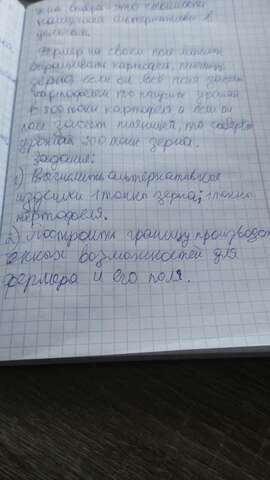 это стоимость
наилучшей альтернативы в
Фермер на своем поле может
выращивать картофель, пшеницу
(зерно) если он всё поле засеет
картофелем то получит урожай
в 300 тонн картофеля а если он
поле засеет пшеницей, то соберет
урожай 200 тонн зерна.
Задания:
1) Вычислить альтернативные
издержки 1 тонны зерна; 1 тонны
картофеля.
2) Построить границу производст
венных возможностей для
фермера и его поля.